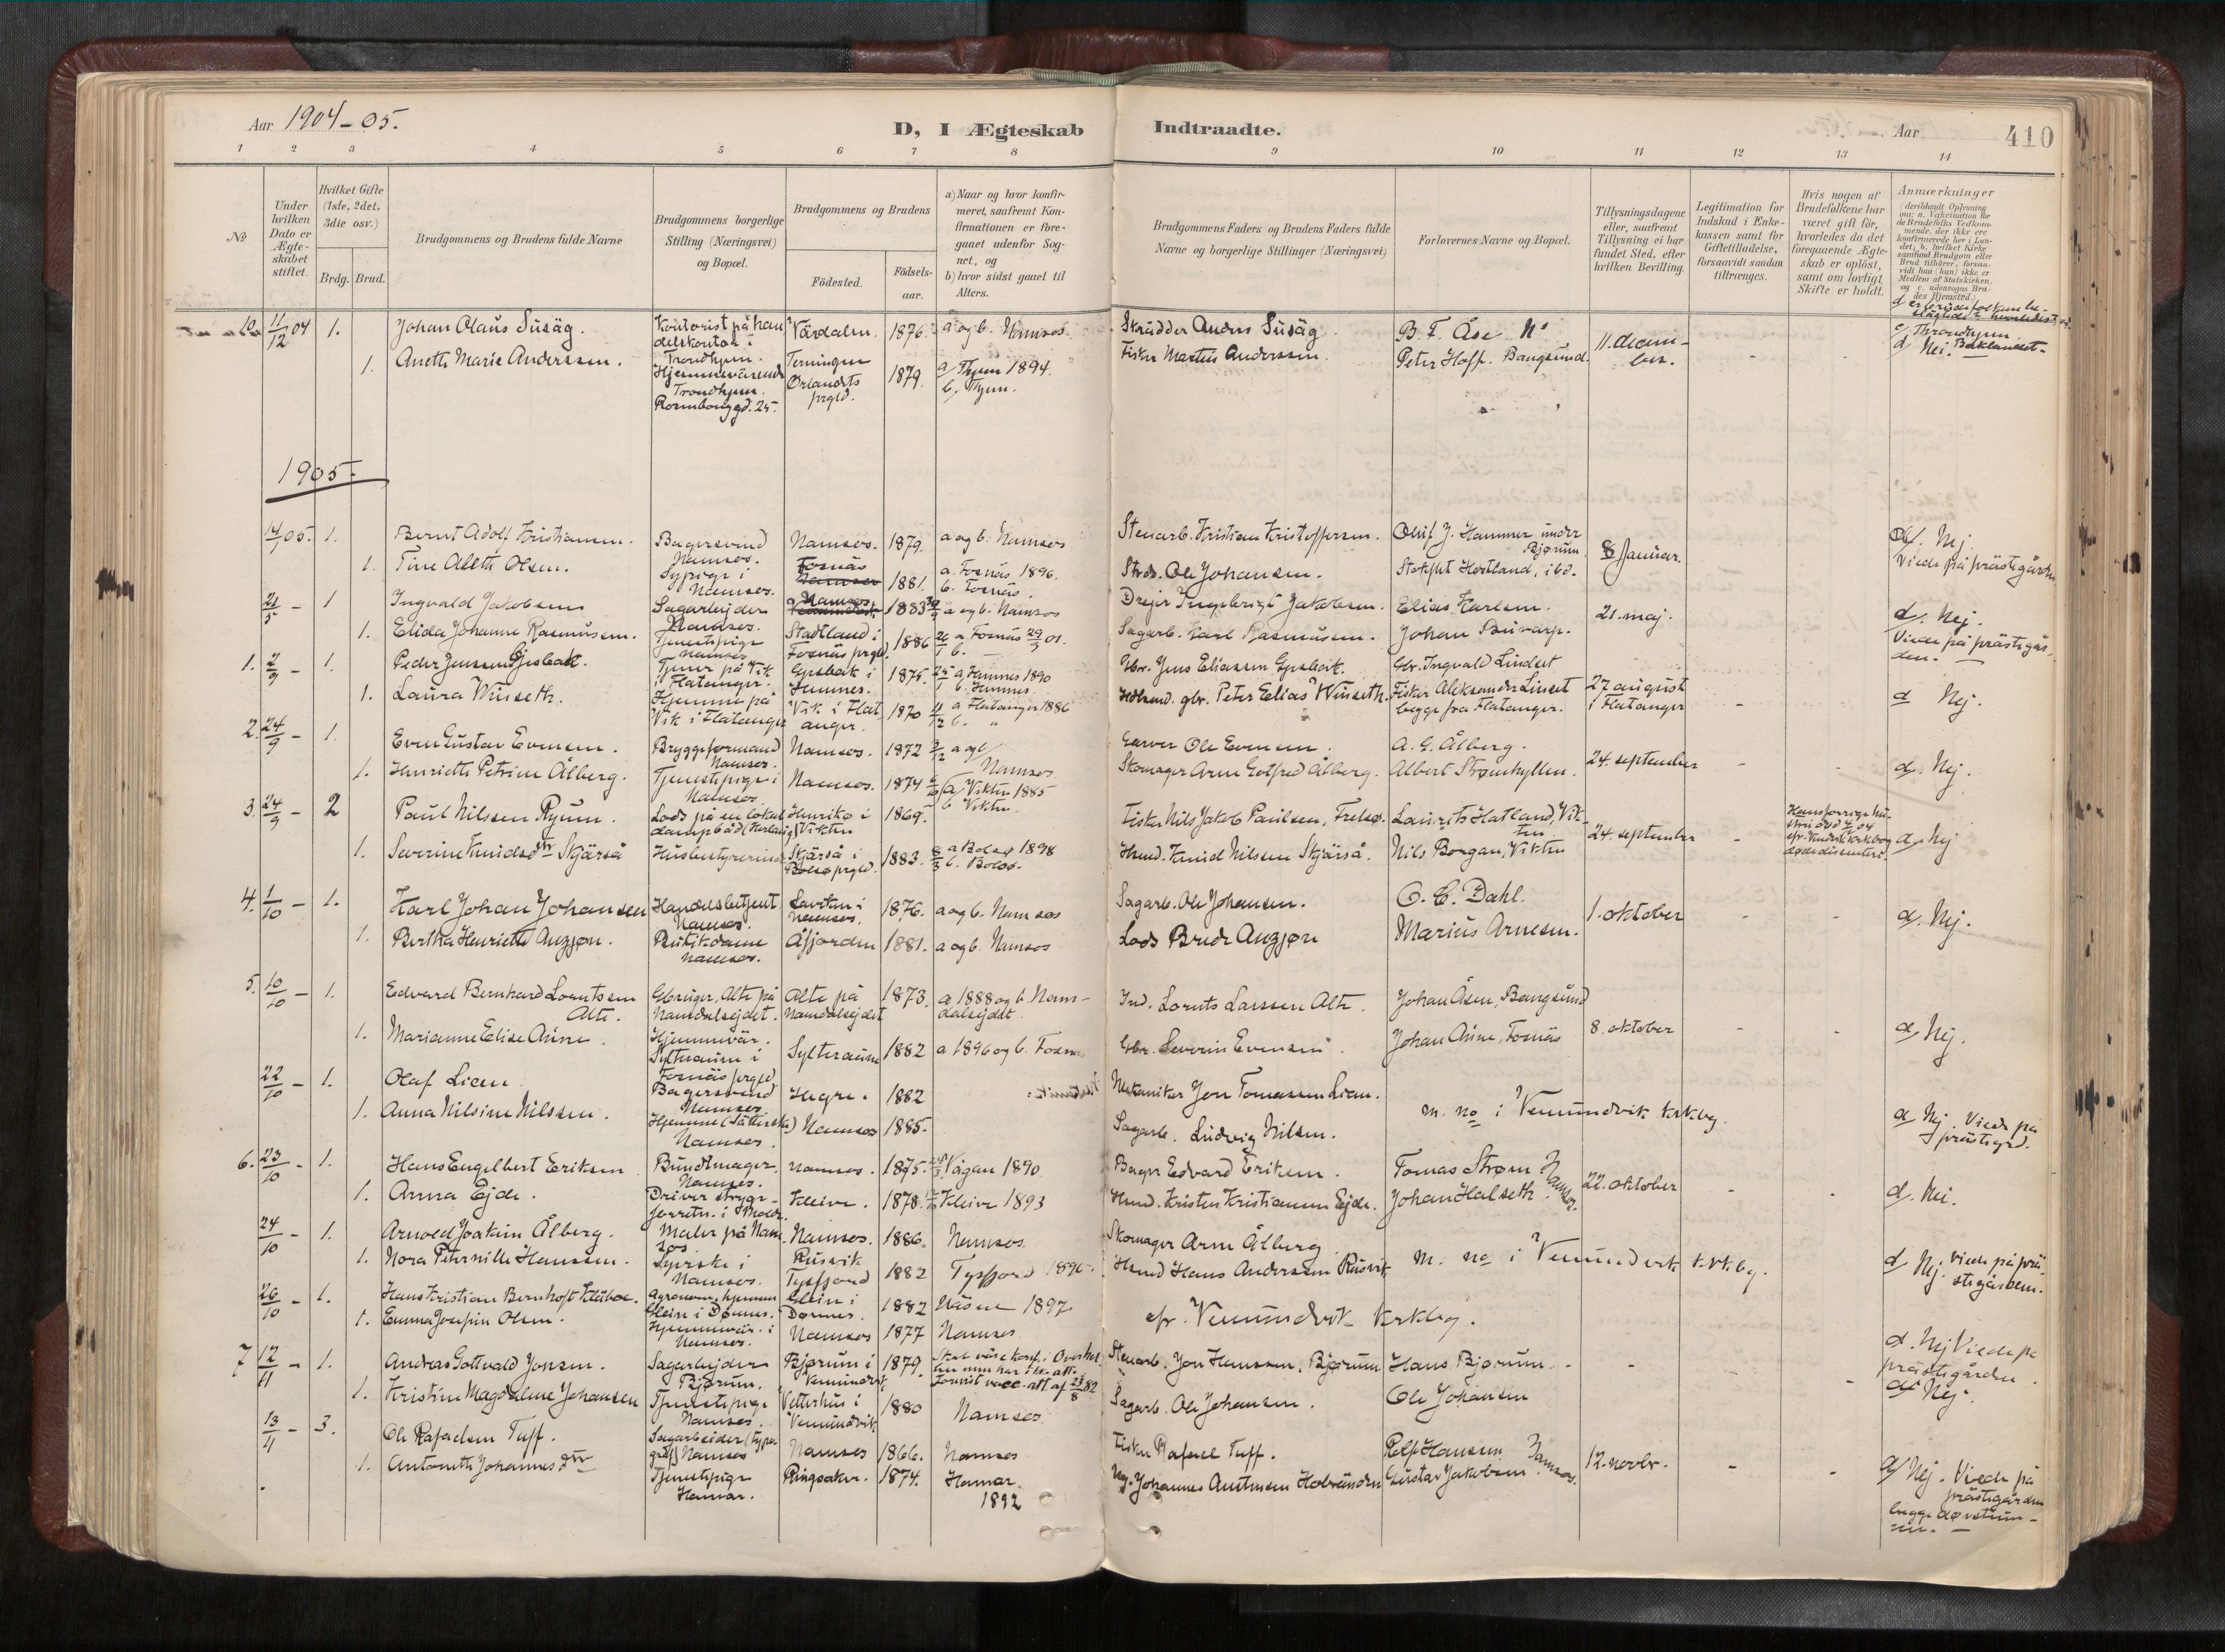 Aar 1904-05.
D, I Ægteskab Indtraadte.
Aar
410
1 2 3 4 5 6 7 8 9 10 11 12 13 14
No
Under hvilken Dato er Ægteskabet stiftet.
Hvilket Gifte (1ste, 2det, 3die osv.)
Brdg. Brud.
Brudgommens og Brudens fulde Navne
Brudgommens borgerlige Stilling (Næringsvei) og Bopæl.
Brudgommens og Brudens
Födested.
Födselsaar.
a) Naar og hvor konfirmeret, saafremt Konfirmationen er foregaaet udenfor Sognet, og
b) hvor sidst gaaet til Alters.
Brudgommens Faders og Brudens Faders fulde Navne og borgerlige Stillinger (Næringsvei)
Forlovernes Navne og Bopæl.
Tillysningsdagene eller, saafremt Tillysning ei har fundet Sted, efter hvilken Bevilling.
Legitimation for Indskud i Enkekassen samt for Giftetilladelse, forsaavidt saadan tiltrænges.
Hvis nogen af Brudefolkene har været gift för, hvorledes da det foregaaende Ægteskab er oplöst, samt om lovligt Skifte er holdt.
Anmærkninger
10 11/12 04 1. Johan Olaus Susäg. Kontorist på handelskontor i Trondhjem. Värdalen. 1876. a og b. Namsos Skrädder Anders Susäg B. F. Åse Ns 11 december. - -
1. Aneth Marie Anderssen. Hjemmevärende Trondhjem. Rosenborggd. 25. Terningen Ørlandets prgld. 1879. a Thjem 1894. b. Thjem. Fisker Martin Anderssen. Peter Hoff. Bangsund. c/ Throndhjem Baklandet. d Nei.
1905.
14/1 05. 1. Bernt Adolf Kristiansen. Bagersvend Namsos. Namsos. 1879. a og b. Namsos Stenarb. Kristian Kristoffersen. Oluf J. Hammer under Bjørum 8 Januar. d. Nej. Viede på prästegården
1. Tine Aleth Olsen. Sypige i Namsos. Fosnäs 1881. a. Fosnäs 1896. b. Fosnäs. Strds. Ole Johansen. Hortland, ibd.
21/5 - 1 Ingvald Jakobsen Sagarbejder Namsos. Namsos. 1883 a og b. Namsos Drejer Ingebrigt Jakobsen. Elias Karlsen. 21. maj. d. Nej. Viede på prästegården. -
1. Elida Johanne Rasmussen. Tjenestepige Namsos Stadtland i Fosnäs prgld. 1886 a Fosnäs 01. b. - Sagarb. Karl Rasmussen. Johan Buvarp.
1. 2/9 - 1. Peder Jenssen Gjesbak. Tjener på Vik i Flatanger. Gjesbak i Hemnes. 1875. a Hemnes 1890 b. Hemnes Gbr. Jens Eliassen Gjesbak. Gbr. Ingvald Lindset 27 august i Flatanger -
1. Laura Wiiseth. Hjemme på Vik i Flatanger Vik i Flatanger. 1870 a Flatanger 1886 b. " gbr. Peter Elias Wiiseth. Fisker Aleksander Linset begge fra Flatanger. d Nej.
2. 24/9 - 1. Even Gustav Evensen. Bryggeformand Namsos. Namsos. 1872 a og b/ Namsos Garver Ole Evensen. A. G. Ålberg. 24. september - - d. Nej.
1. Henriette Petrine Ålberg. Tjenestepige i Namsos Namsos. 1874 a/ Vikten 1885 b Vikten. Skomager Arne Gotfred Ålberg. Albert Strømhyllen.
3. 24/9 - 2 Paul Nilssen Ryum. Lods på en lokal dampbåd Henrikø i Vikten 1869. Fisker Nils Jakob Paulsen, Frelsø. Laurits Hatland, Vikten 24. september - Hans forrige hustru død 04 d. Nej
1. Severine Knudsdtr Skjärså Husbestyrerinde Skjärså i Bolsø prgld. 1883. a Bolsø 1898 b. Bolsø. Husmd. Knud Nilssen Skjärså. Nils Borgan, Vikten
4. 1/10 - 1. Karl Johan Johansen Handelsbetjent Namsos. Namsos. 1876. a og b. Namsos Sagarb. Ole Johansen. O. C. Dahl. 1. oktober - - d. Nej.
1. Bertha Henriette Angjøn. Butikdame Namsos. Åfjorden 1881. a og b. Namsos Lods Angjøn Marius Arnesen.
5. 10/10 - 1. Edvard Bernhard Lorntsen Alte. Gbruger, Alte på Namdalsejdet. Alte på Namdalsejdet 1873. a 1888 og b Namdalsejdet Ind. Lornts Larssen Alte. Johan Åsen, Bangsund 8. oktober - - d. Nej.
1. Marianne Elise Aune. Hjemmevär. Sylteraune i Fosnäs prgld Sylteraune 1882 a 1896 og b. Fosnäs Gbr. Severin Evensen. Johan Aune, Fosnäs
22/10 - 1. Olaf Lien. Bagersvend Namsos. Hegre. 1882 Mekaniker Jon Tomassen Lien. m. no i Vemundvik krkbg. d. Nej. Viede på prästegrd.
1. Anna Nilsine Nilssen. Hjemme Namsos. Namsos 1885. Sagarb. Ludvig Nilsen.
6. 23/10 - 1. Hans Engelbert Eriksen Bundtmager. Namsos. Namsos. 1875. Vågan 1890 Bager Edvard Eriksen. Tomas Strøm Namsos. 22. oktober - - d. Nei.
1. Anna Ejde. Driver strygeforretn. i Molde. Kleive. 1878. Kleive 1893 Husmd. Kristen Kristiansen Ejde. Johan Halseth
24/10 - 1. Arnold Joakim Ålberg. Maler på Namsos Namsos. 1886. Namsos Skomager Arne Ålberg. m. no i Vemundvik krkbg. d. Nej. Viede på prästegården.
1. Nora Peternille Hansen. Syerske i Namsos. Rusvik Tysfjord 1882 Tysfjord 1896. Husmd Hans Anderssen Rusvik
26/10 - 1. Hans Kristian Bernhoft Kläboe. Agronom, hjemme Glein i Dønnes. Glein i Dønnes. 1882 Näsne 1897 cfr. Vemundvik krkbg.
1. Emma Josefin Olsen. Hjemmevär. i Namsos. Namsos 1877 Namsos d. Nej Viede på prästegården.
7 12/11 - 1. Andreas Gottvald Jonsen. Sagarbejder Bjørum. Bjørum i Vemundvik 1879. Stenarb. Jon Hanssen, Bjørum Hans Bjørum - - - d. Nej.
1. Kristine Magdalene Johansen Tjenestepige Namsos. Vetterhus i Vemundvik 1880 Namsos Sagarb. Ole Johansen. Ole Johansen
13/11 - 3. Ole Rafaelsen Tuff. Sagarbeider (typograf) Namsos Namsos 1866. Namsos Fisker Rafael Tuff. Rolf Hansen Namsos. 12. novbr. - - d/ Nej. Viede på prästegården begge døvstumme. -
1. Antonette Johannesdtr Tjenestepige Hamar. Ringsaker. 1874. Hamar. 1892 Johannes Antonsen Gustav Jakobsen